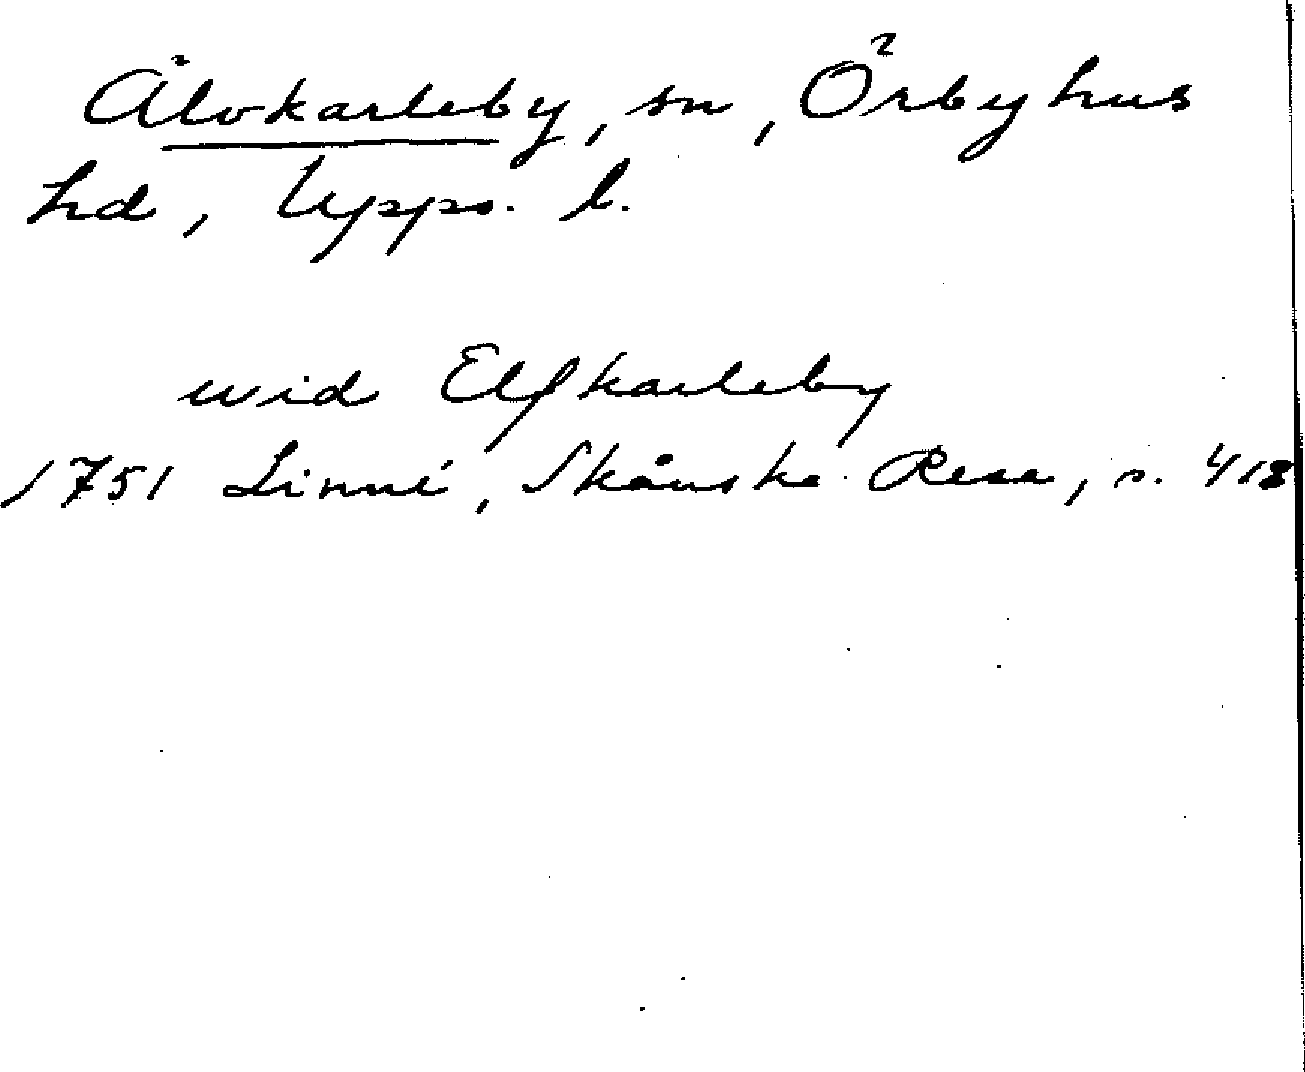 Älvkarleby, sn, Örbyhus
hd, Upps. l.
wid Elfkarleby
1751 Linné, Skånska Resa, s. 418